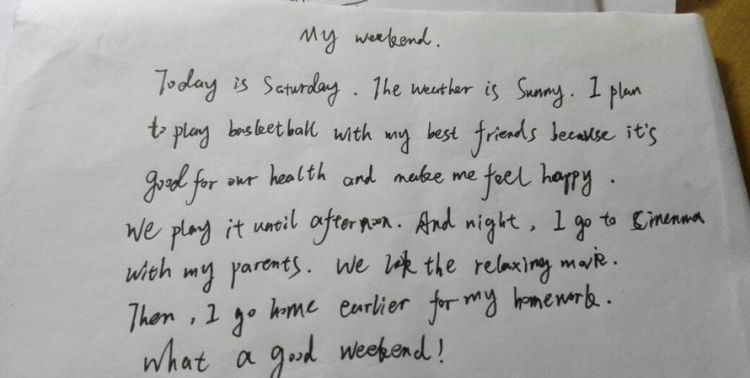 My weekend.
Today is Saturday. The weather is Sunny. I plan
to play basketball with my best friends because it's
good for our health and make me feel happy.
We play it until afternoon. And night, I go to Cinenma
with my parents. We the relaxing movie.
Then, I go home earlier for my homework.
What a good weekend!